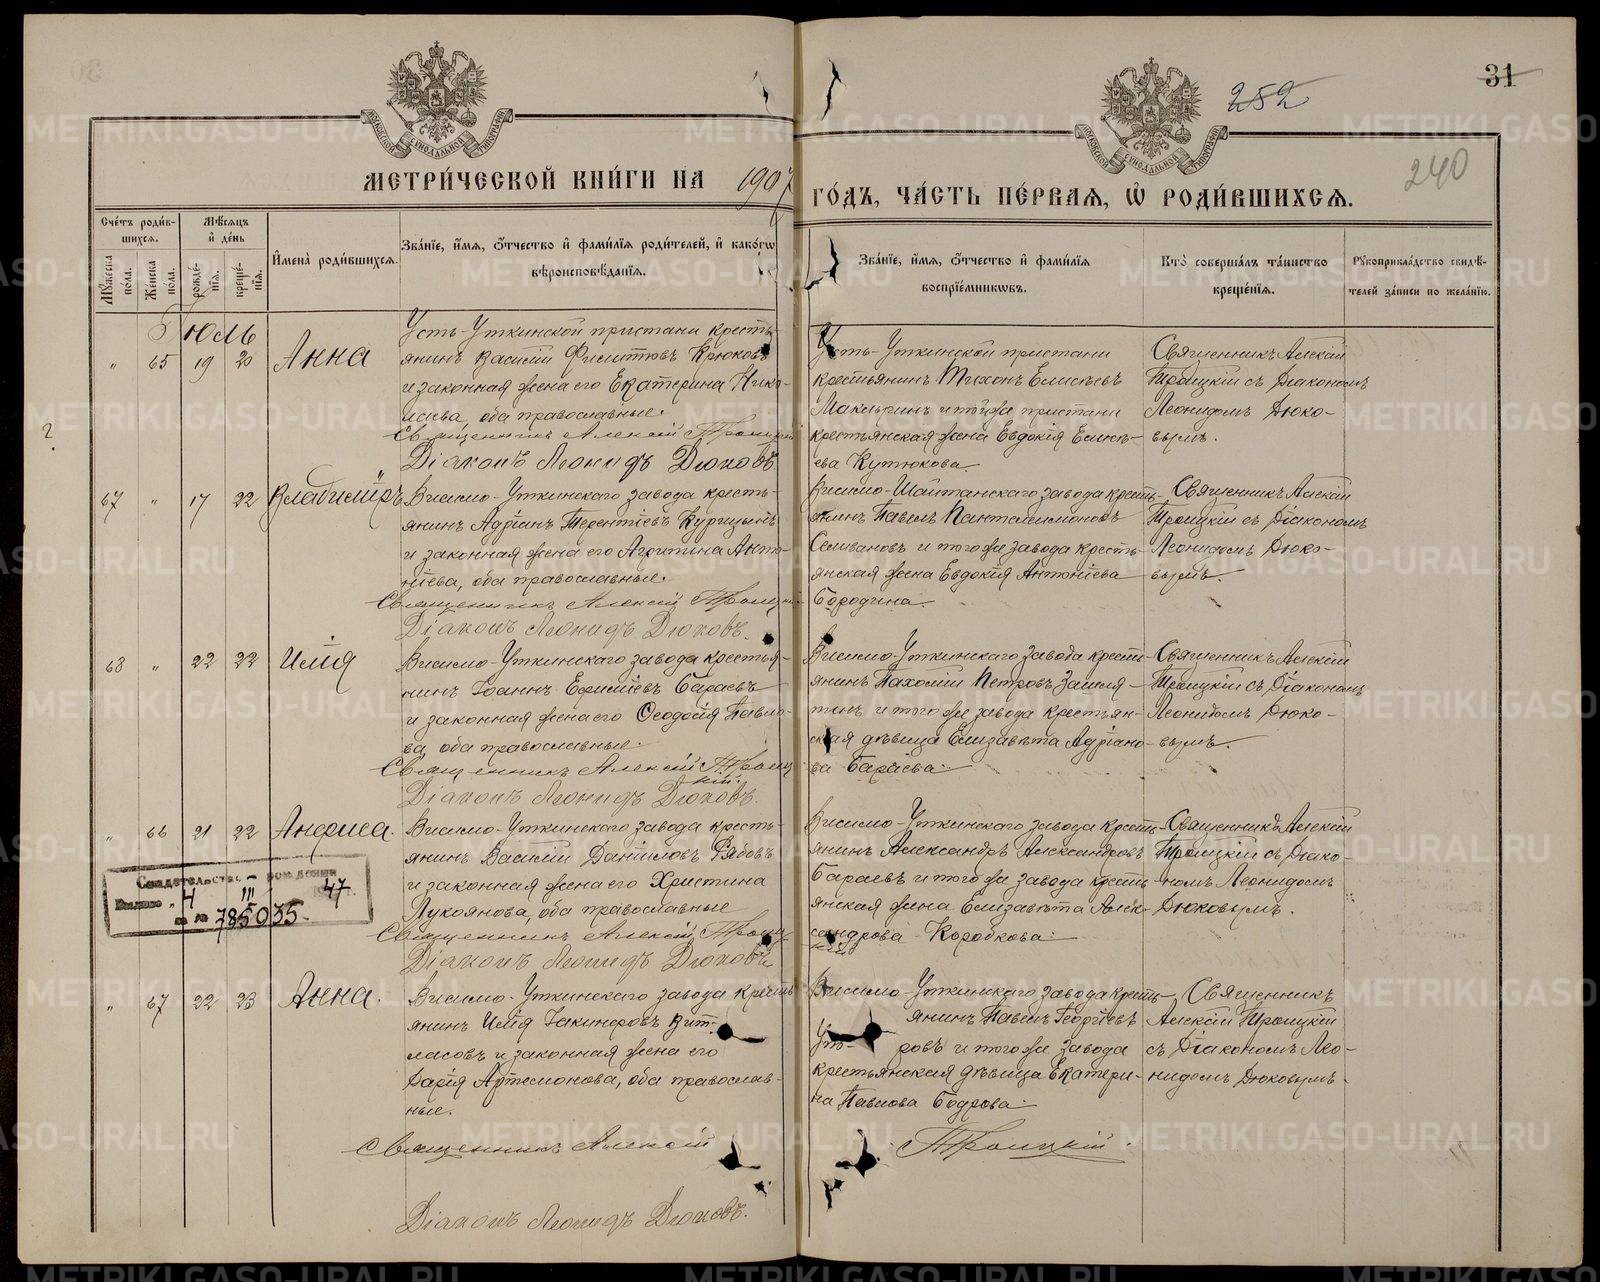 31
252
240
МЕТРИ́ЧЕСКОЙ КНИ́ГИ НА 1907 ГО́ДЪ, ЧА́СТЬ ПЕ́РВАЯ, Ѡ҆ РОДИ́ВШИХСЯ.
Сче́тъ роди́вшихся.
Мѹ́жеска по́ла.
Же́нска по́ла.
Мѣ́сяцъ и҆ де́нь
рожде́нїя.
креще́нїя.
И҆мена̀ роди́вшихся.
Зва́нїе, и҆́мя, ѻ҆́тчество и҆ фами́лїя роди́телей, и҆ како́гѡ вѣроисповѣ́данїя.
Зва́нїе, и҆́мя, ѻ҆́тчество и҆ фами́лїя воспрїе́мникѡвъ.
Кто̀ соверша́лъ та́инство креще́нїя.
Рѹкоприкла́дство свидѣ́телей за́писи по жела́нїю.
Іюль
" 65 19 20 Анна
Усть-Уткинской пристани кресть-
янинъ Василій Филитовъ Крюковъ
и законная жена его Екатерина Нико-
лаева, оба православные.
Священникъ Алексій Троицкій
Діаконъ Леонидъ Дюковъ
Усть-Уткинской пристани
крестьянинъ Тихонъ Елисѣевъ
Макъринъ и тойже пристани
крестьянская жена Евдокія Елисѣ-
ева Кутюкова.
Священникъ Алексій
Троицкій съ Діакономъ
Леонидомъ Дюко-
вымъ.
67 " 17 22 Владиміръ
Висимо-Уткинскаго завода кресть-
янинъ Адріанъ Терентіевъ Курицынъ
и законная жена его Агрипина Анто-
ніева, оба православные.
Священникъ Алексій Троицк
Діаконъ Леонидъ Дюковъ.
Висимо-Шайтанскаго завода кресть-
янинъ Павелъ Пантелеимоновъ
Селивановъ и тогоже завода кресть-
янская жена Евдокія Антоніева
Бородина.
Священникъ Алексій
Троицкій съ Діакономъ
Леонидомъ Дюко-
вымъ.
68 " 22 22 Илія
Висимо-Уткинскаго завода крестья-
нинъ Іоаннъ Ефиміевъ Бараевъ
и законная жена его Ѳеодосія Павло-
ва, оба православные.
Священникъ Алексій Троиц
кій.
Діаконъ Леонидъ Дюковъ.
Висимо-Уткинскаго завода кресть-
янинъ Пахомій Петровъ Замя-
тинъ и тогоже завода крестьян-
ская дѣвица Елизавѣта Адріано-
ва Бараева.
Священникъ Алексій
Троицкій съ Діакономъ
Леонидомъ Дюко-
вымъ.
" 66 21 22 Анфиса.
Висимо-Уткинскаго завода кресть-
янинъ Василій Даніиловъ Рябовъ
и законная жена его Христина
Лукоянова, оба православные
Священникъ Алексій Троиц
Діаконъ Леонидъ Дюковъ
Висимо-Уткинскаго завода кресть-
янинъ Александръ Александровъ
Бараевъ и тогоже завода кресть-
янская жена Елизавѣта Алек-
сандрова Коробкова.
Священникъ Алексій
Троицкій съ Діако-
номъ Леонидомъ
Дюковымъ.
Свидетельство о рождении
Выдано "4 III 47
за № 785035.
" 67 22 23 Анна.
Висимо-Уткинскаго завода кресть
янинъ Илія Іакинфовъ Вит-
ласовъ и законная жена его
Дарія Артемонова, оба православ-
ные.
Висимо-Уткинскаго завода кресть-
янинъ Павелъ Георгіевъ
Ут- ровъ и тогоже завода
крестьянская дѣвица Екатери-
на Павлова Бодрова.
Священникъ
Алексій Троицкій
съ Діакономъ Лео-
нидомъ Дюковымъ.
Священникъ Алексій Троицкій.
Діаконъ Леонидъ Дюковъ.
METRIKI.GASO-URAL.RU